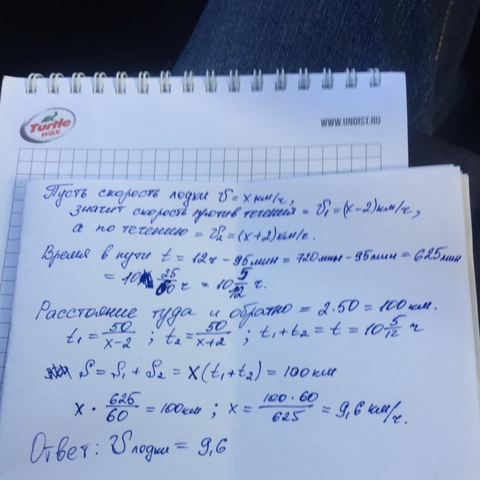 Turtle
WAX
WWW.UNDIST.RU
Пусть скорость лодки V = x км/ч,
значит скорость против течения = V₁ = (x-2) км/ч,
а по течению = V₂ = (x+2) км/ч.
Время в пути t = 12ч - 95мин = 720мин - 95мин = 625мин
= 10 25/60 ч = 10 5/12 ч.
Расстояние туда и обратно = 2·50 = 100 км.
t₁ = 50/(x-2) ; t₂ = 50/(x+2) ; t₁ + t₂ = t = 10 5/12 ч
S = S₁ + S₂ = x(t₁+t₂) = 100 км
x · 625/60 = 100км ; x = 100·60/625 = 9,6 км/ч.
Ответ: V лодки = 9,6